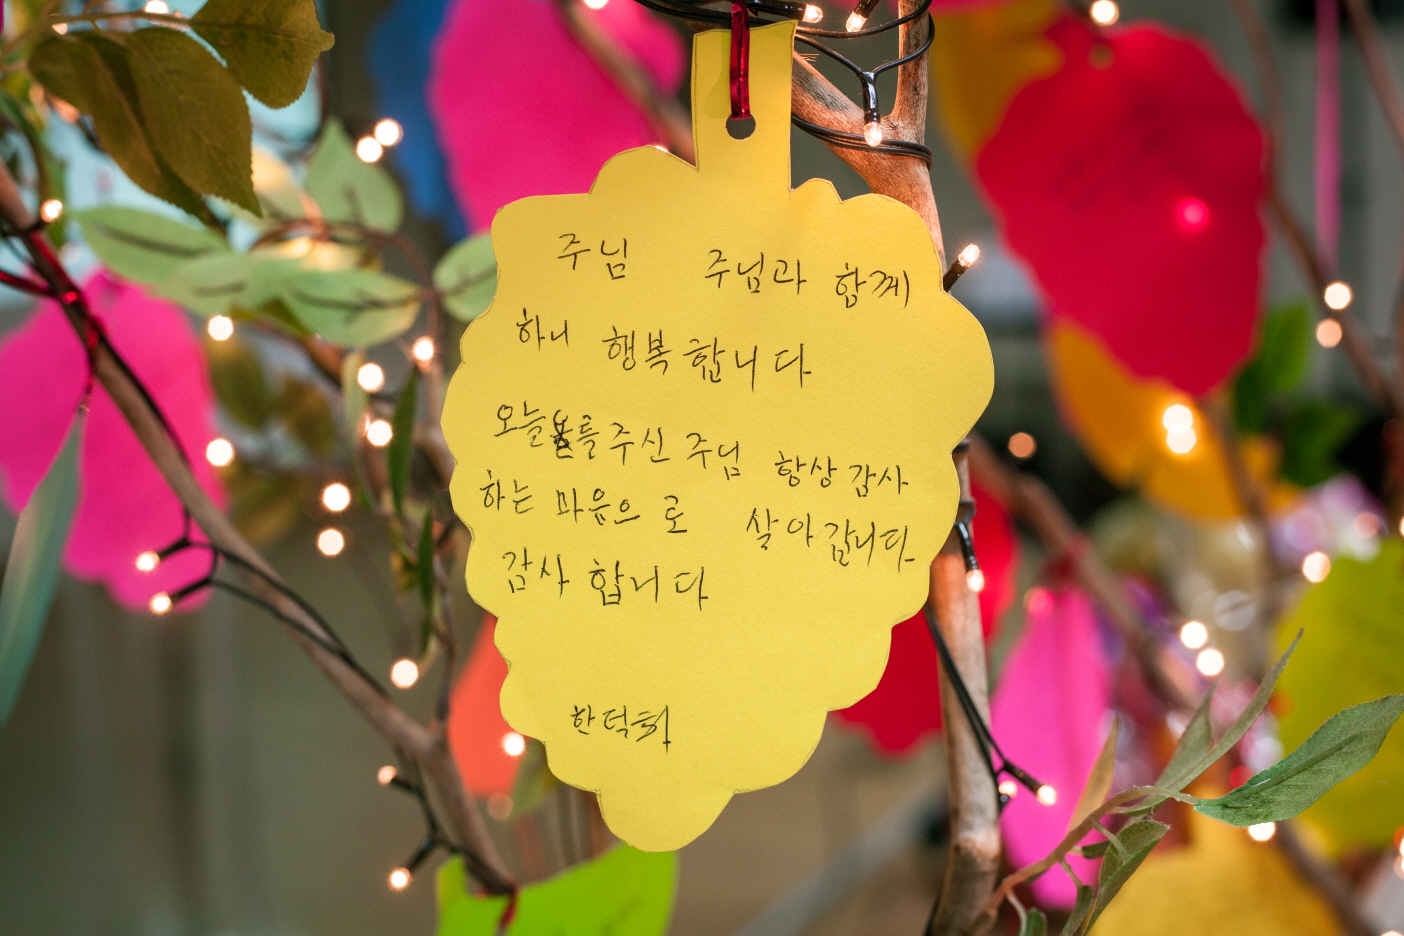 주님 주님과 함께
하니 행복합니다
오늘 를 주신 주님 항상 감사
하는 마음으로 살아갑니다.
감사합니다
한덕희